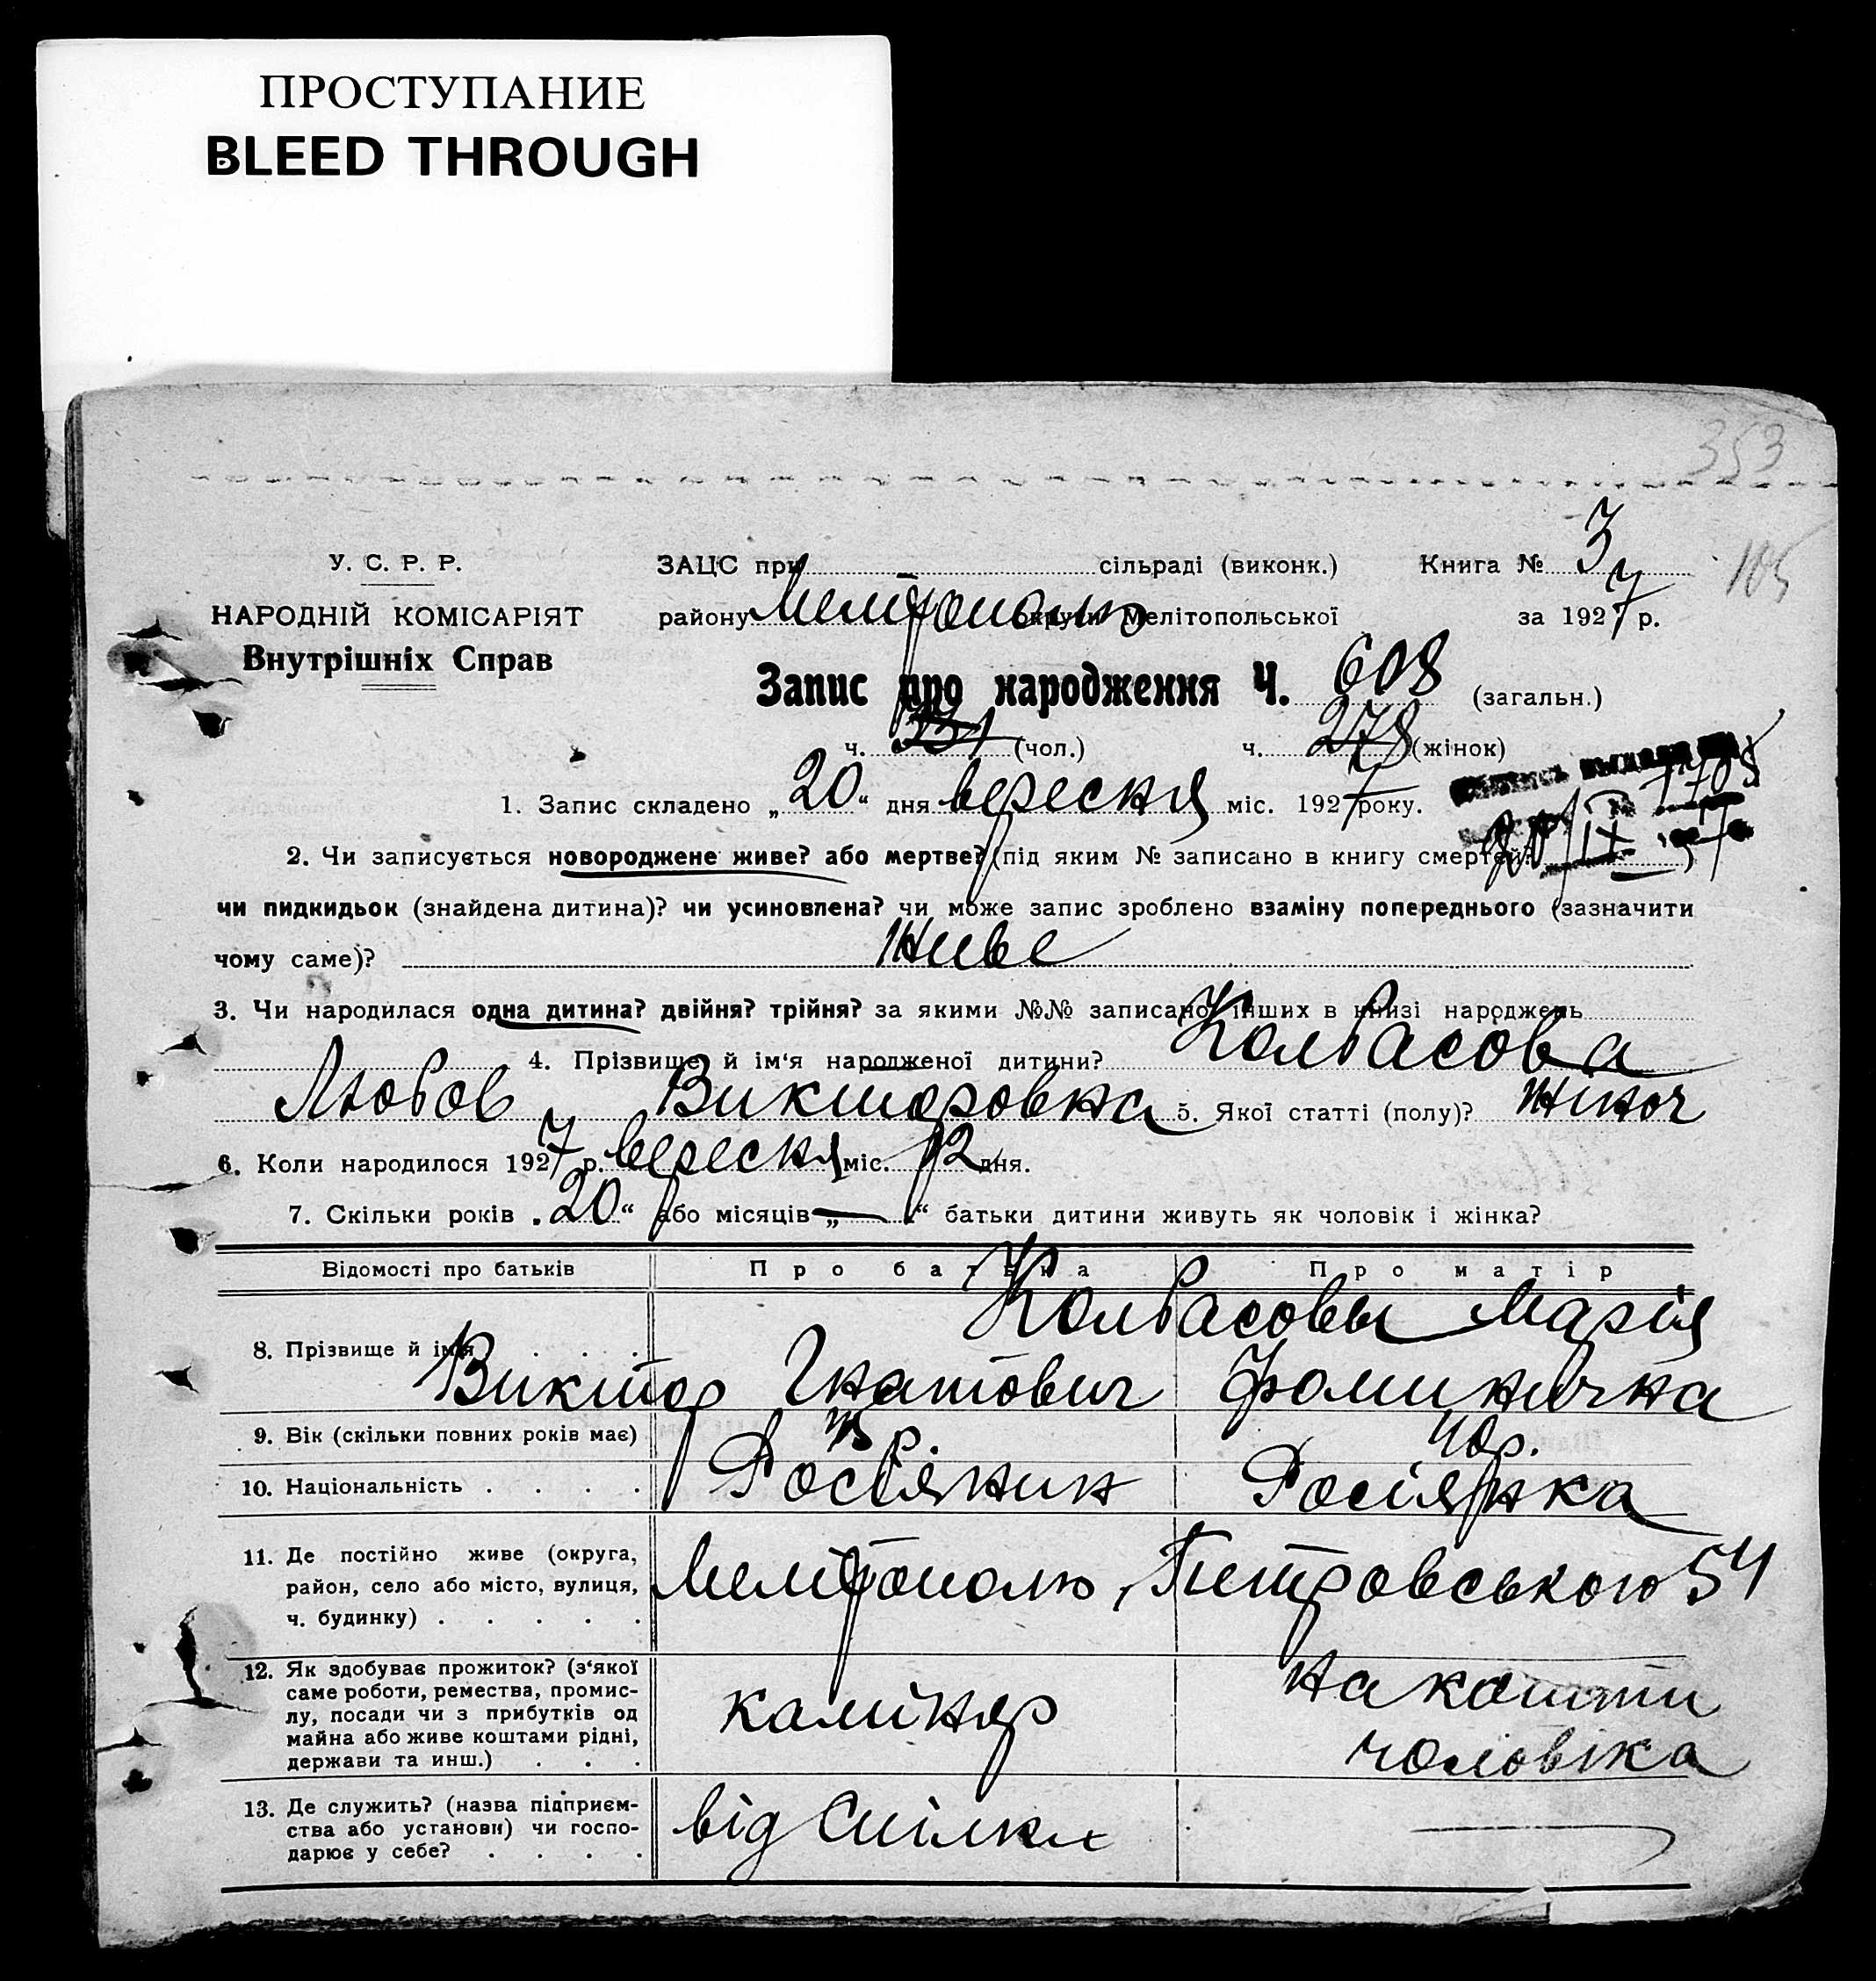 ПРОСТУПАНИЕ
BLEED THROUGH
353
У. С. Р. Р.
НАРОДНІЙ КОМІСАРІЯТ
Внутрішніх Справ
ЗАЦС при сільраді (виконк.) Книга № 3
105
району Мелітополю округи Мелітопольської за 1927 р.
Запис про народження Ч. 608 (загальн.)
ч. 331 (чол.) ч. 278 (жінок)
1. Запис складено „20“ дня вересня міс. 1927 року.
2. Чи записується новороджене живе? або мертве? (під яким № записано в книгу смертей? )
чи пидкидьок (знайдена дитина)? чи усиновлена? чи може запис зроблено взаміну попереднього (зазначити
чому саме)? Живе
3. Чи народилася одна дитина? двійня? трійня? за якими №№ записано інших в книзі народжень
4. Прізвище й ім‘я народженої дитини? Колбасова
Любов Викторовна 5. Якої статті (полу)? жіноч
6. Коли народилося 1927 р. вересня міс. 12 дня.
7. Скільки років „20“ або місяців „—“ батьки дитини живуть як чоловік і жінка?
Відомості про батьків Про батька Про матір
Колбасовы Марія
8. Прізвище й ім‘я . . .
Виктор Гнатович Фоминична
9. Вік (скільки повних років має) р. 40р.
10. Національність . . . . Росіянин Росіянка
11. Де постійно живе (округа,
район, село або місто, вулиця,
ч. будинку) . . . . .
Мелітополю, Петровського 54
12. Як здобуває прожиток? (з‘якої
саме роботи, ремества, промис-
лу, посади чи з прибутків од
майна або живе коштами рідні,
держави та инш.) . . .
каміняр на кошти
чоловіка
13. Де служить? (назва підприєм-
ства або установи) чи госпо-
дарює у себе? . . . .
від Спілки